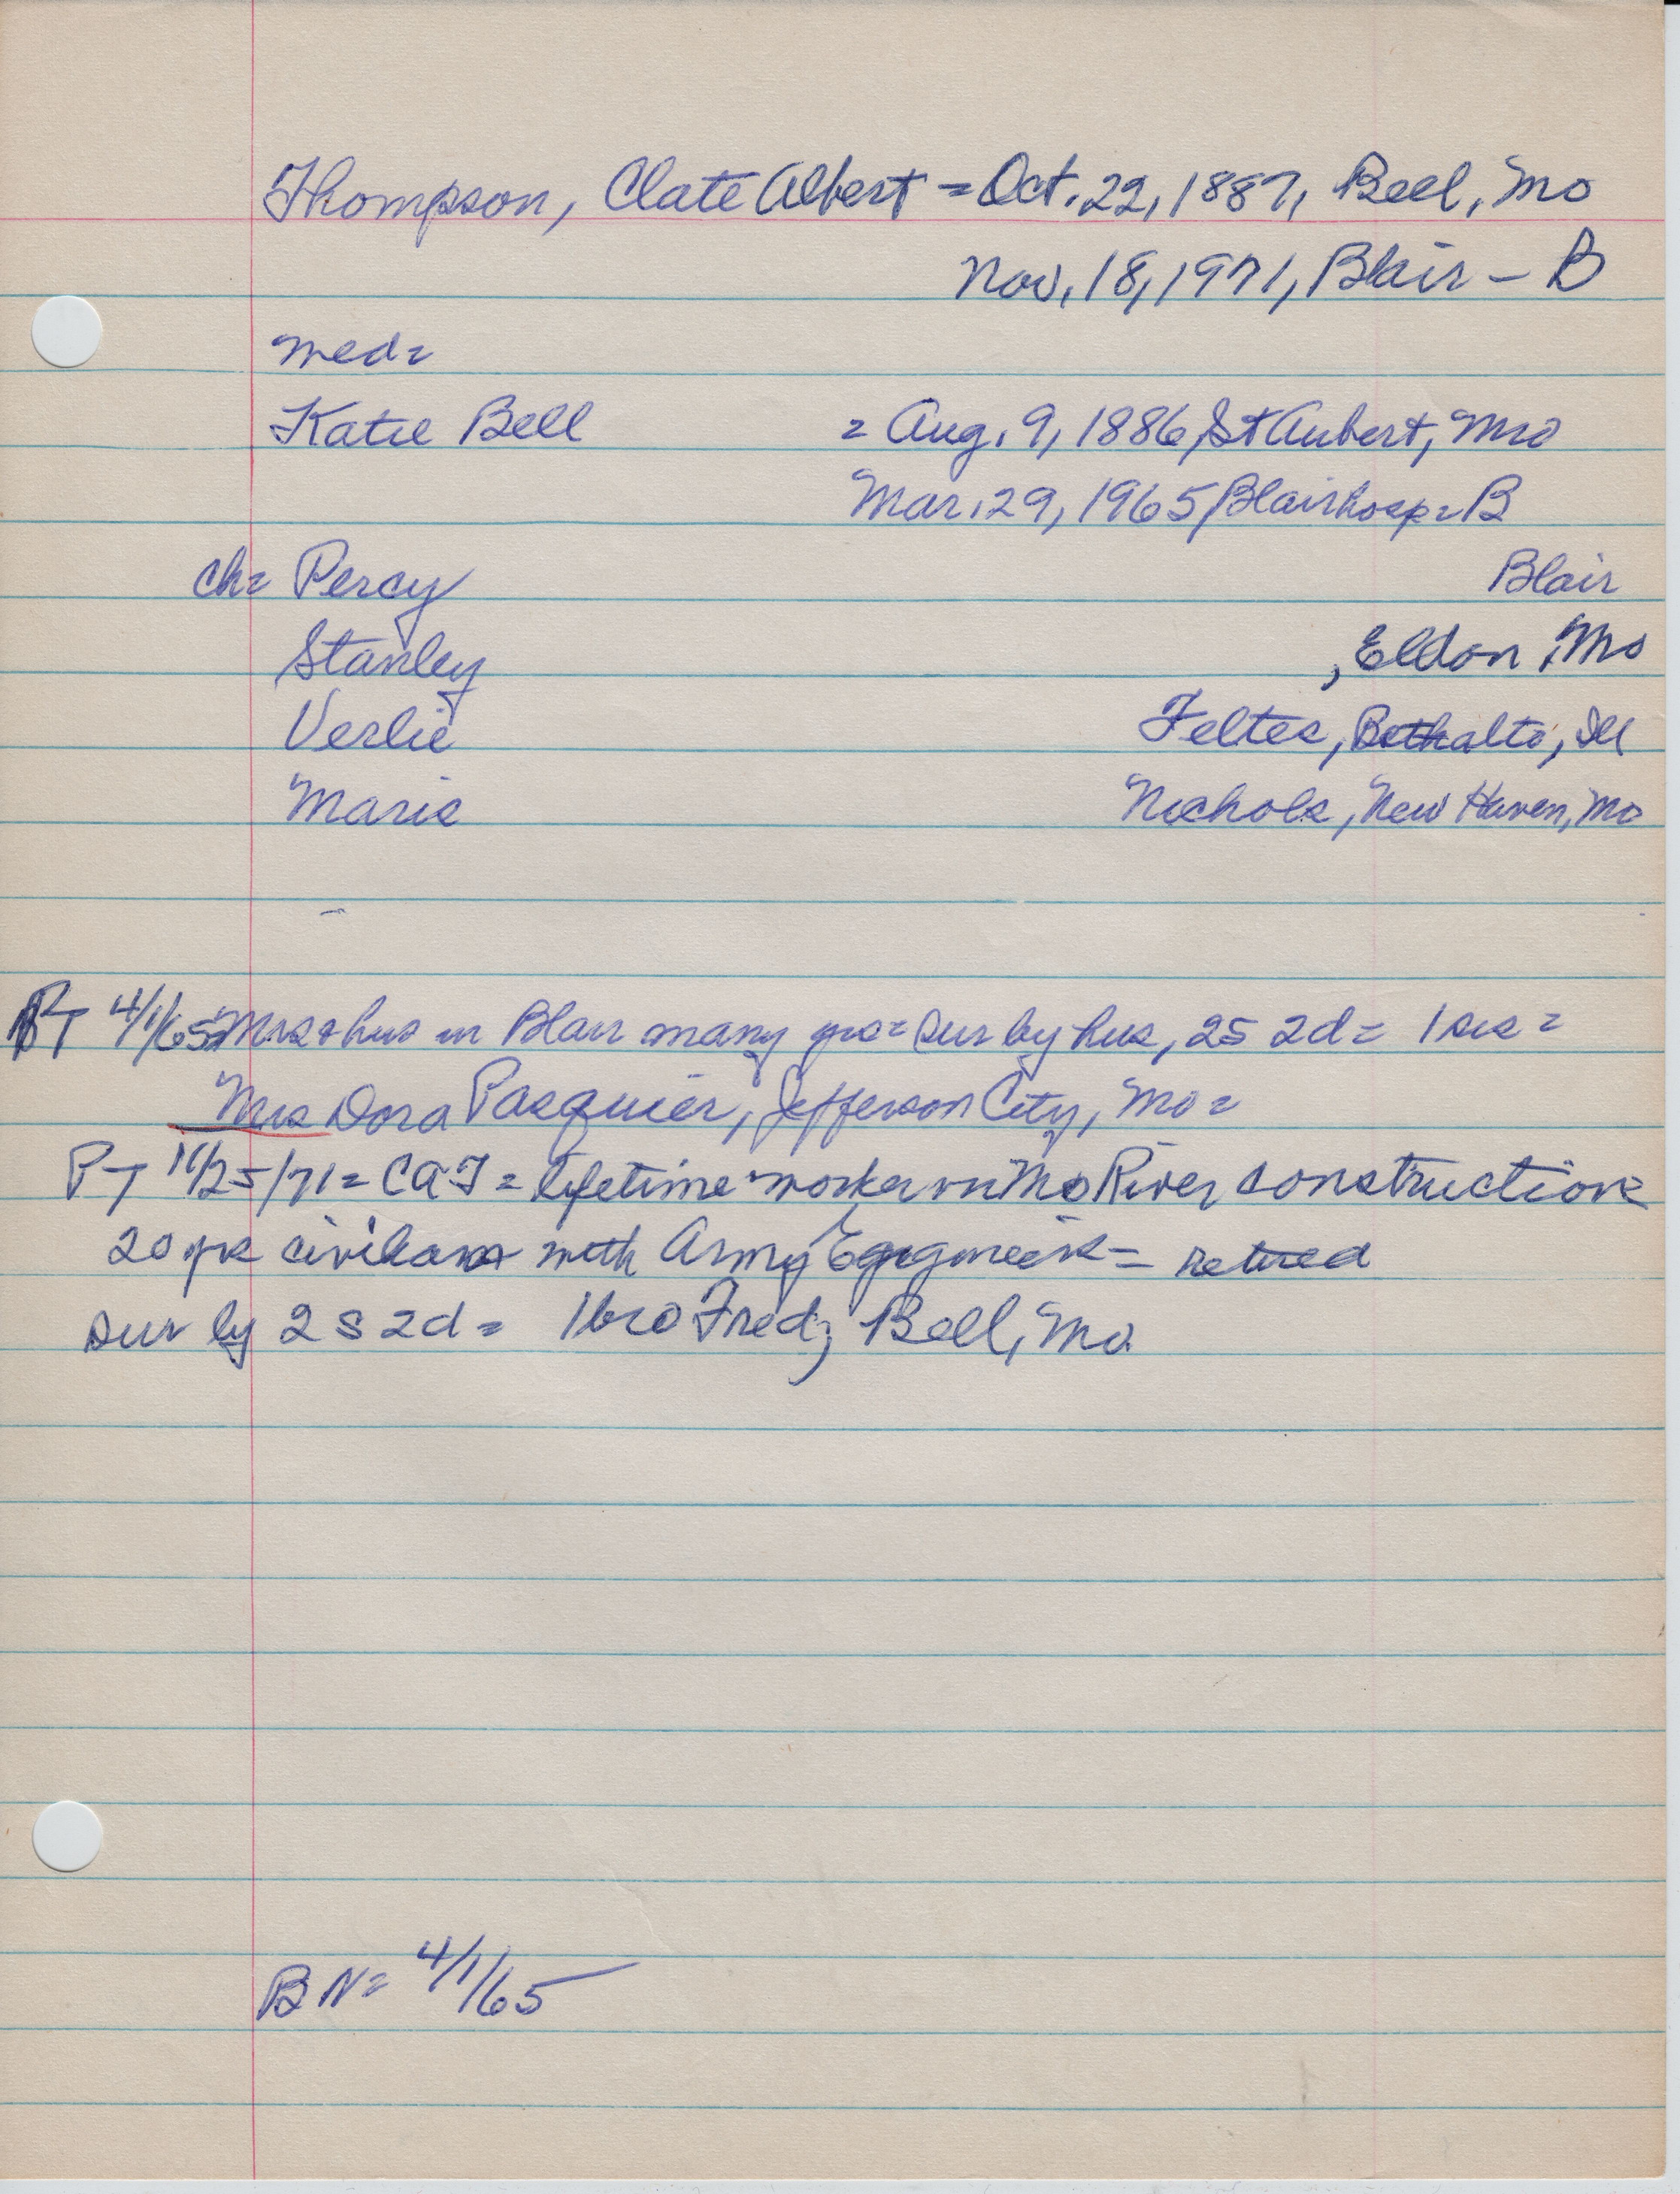 Thompson, Clate Albert = Oct. 22, 1887, Bell, Mo
Nov. 18, 1971, Blair - B
med=
Katie Bell = Aug. 9, 1886, St Aubert, Mo
Mar. 29, 1965, Blair hosp = B
ch= Percy Blair
Stanley , Eldon, Mo
Verlie Feltes, Bethalto, Ill
Marie Nichols, New Haven, Mo
PT 4/1/65= Mrs & hus in Blair many yrs = sur by hus, 2s 2d = 1 sis =
Mrs Dora Pasquier, Jefferson City, Mo =
PT 11/25/71 = CAT = lifetime worker on Mo River construction
20 yrs civilian with Army Egngineers = retired
sur by 2s 2d = 1 bro Fred, Bell, Mo.
BN= 4/1/65